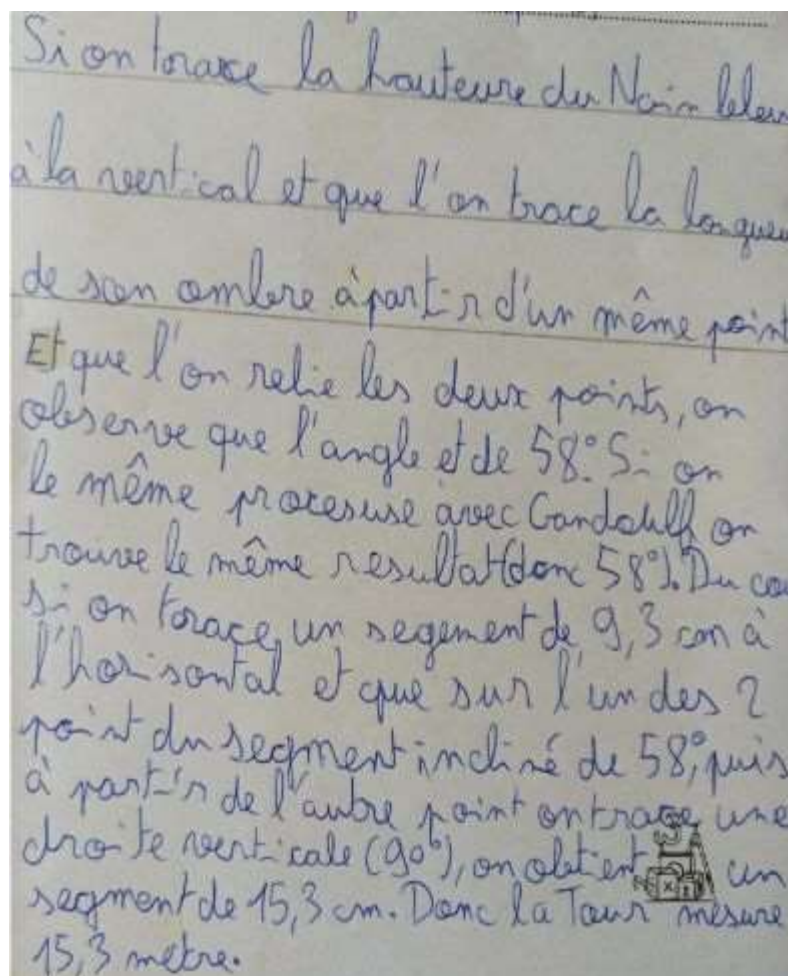 Si on trace la hauteure du Nain bleu
à la vertical et que l'on trace la longueu
de son ombre à partir d'un même point
Et que l'on relie les deux points, on
observe que l'angle et de 58°. Si on
le même procesuse avec Gandalff on
trouve le même resultat (donc 58°). Du cou
si on trace un segement de 9,3 cm à
l'horisontal et que sur l'un des 2
point du segment incliné de 58°, puis
à partir de l'autre point on trace une
droite verticale (90°), on obtient un
segment de 15,3 cm. Donc la Tour mesure
15,3 mètre.